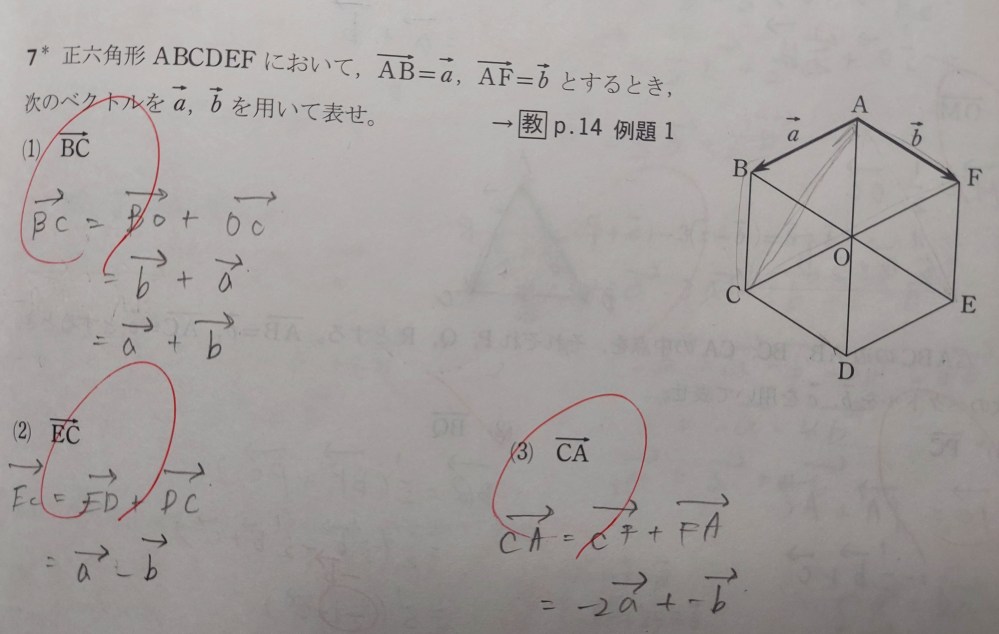 7* 正六角形 ABCDEF において, $\overrightarrow{AB}=\vec{a}$, $\overrightarrow{AF}=\vec{b}$ とするとき,
次のベクトルを $\vec{a}$, $\vec{b}$ を用いて表せ。
→ 教 p.14 例題 1
(1) $\overrightarrow{BC}$
$\overrightarrow{BC} = \overrightarrow{BO} + \overrightarrow{OC}$
$= \vec{b} + \vec{a}$
$= \vec{a} + \vec{b}$
A
$\vec{a}$ $\vec{b}$
B F
O
C E
D
(2) $\overrightarrow{EC}$
$\overrightarrow{EC} = \overrightarrow{ED} + \overrightarrow{DC}$
$= \vec{a} - \vec{b}$
(3) $\overrightarrow{CA}$
$\overrightarrow{CA} = \overrightarrow{CF} + \overrightarrow{FA}$
$= -2\vec{a} + -\vec{b}$